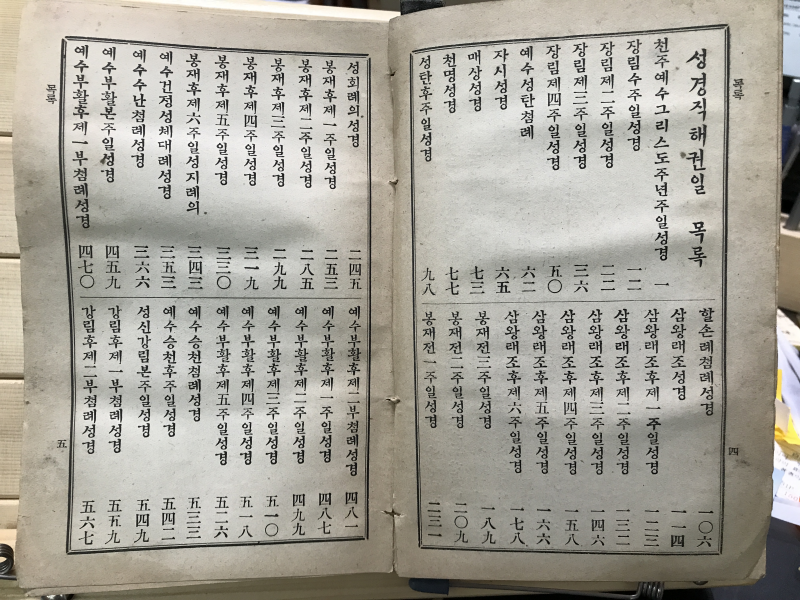 목록
성경직해권일 목록
천주예수그리스도주년주일성경 一
장림수주일성경 一二
장림제二주일성경 二二
장림제三주일성경 三六
장림제四주일성경 五〇
예수성탄첨례 六二
자시성경 六五
매상성경 七三
천명성경 七七
성탄후주일성경 九八
할손례첨례성경 一〇六
삼왕래조성경 一一四
삼왕래조후제一주일성경 一二三
삼왕래조후제二주일성경 一三二
삼왕래조후제三주일성경 一四六
삼왕래조후제四주일성경 一五八
삼왕래조후제五주일성경 一六六
삼왕래조후제六주일성경 一七八
봉재전三주일성경 一八九
봉재전二주일성경 二〇九
봉재전一주일성경 二三一
四
성회례의성경 二四五
봉재후제一주일성경 二五三
봉재후제二주일성경 二八五
봉재후제三주일성경 二九九
봉재후제四주일성경 三一九
봉재후제五주일성경 三三〇
봉재후제六주일성지례의 三四三
예수건정성체대례성경 三五三
예수수난첨례성경 三六六
예수부활본주일성경 四五九
예수부활후제一부첨례성경 四七〇
예수부활후제二부첨례성경 四八一
예수부활후제一주일성경 四八七
예수부활후제二주일성경 四九九
예수부활후제三주일성경 五一〇
예수부활후제四주일성경 五一八
예수부활후제五주일성경 五二六
예수승천첨례성경 五三三
예수승천후주일성경 五四二
성신강림본주일성경 五四九
강림후제一부첨례성경 五五九
강림후제二부첨례성경 五六七
목록
五